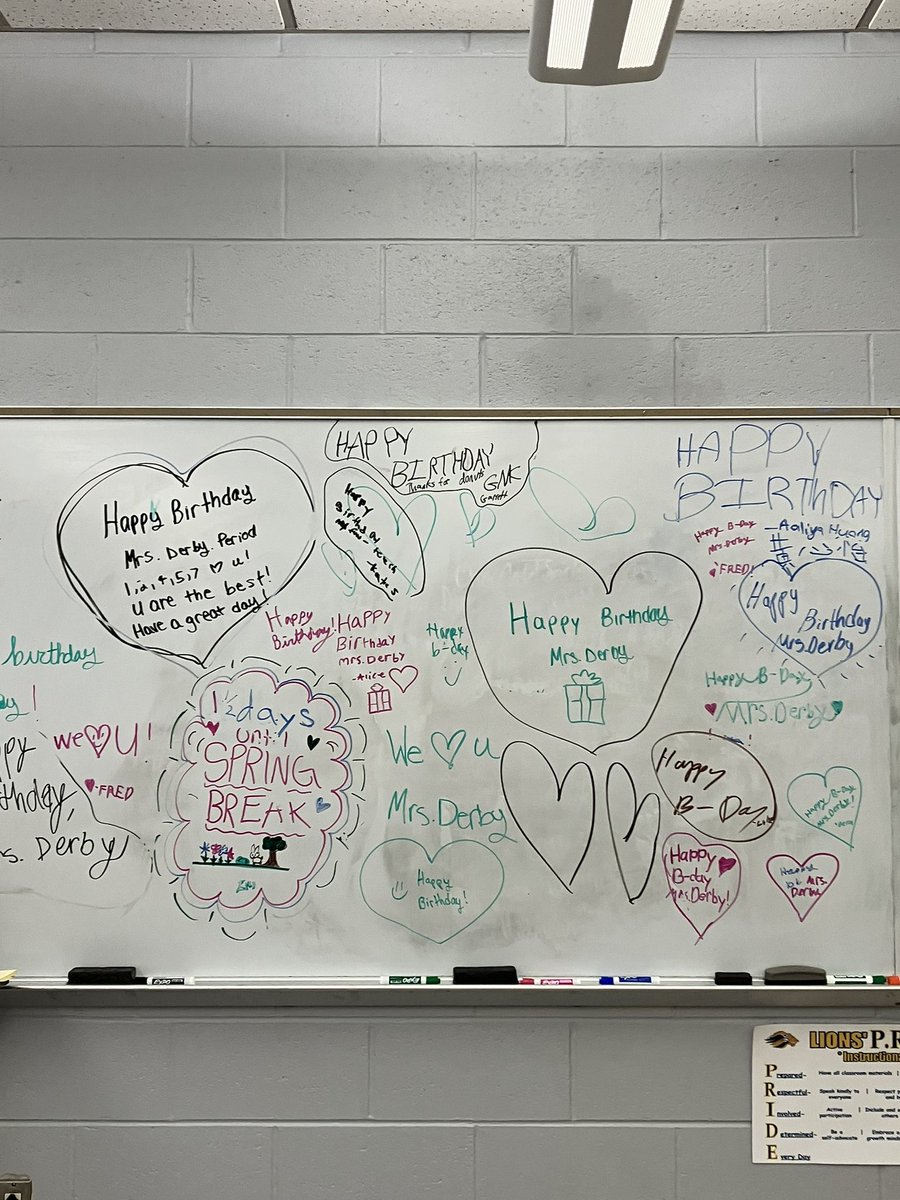 Happy Birthday
Mrs. Derby. Period
1, 2, 4, 5, 7 ♡ u!
u are the best!
Have a great day!
HAPPY
BIRTHDAY
Thanks for donuts
GNK
Garrett
Happy
Birthday
HAPPY
BIRThDAY
-Aaliya Huang
Happy B-Day
Mrs. Derby
♥FRED!
Happy
Birthday
Mrs Derby
Happy
Birthday!
HAPPY
Birthday
mrs. Derby
-Alice
Happy
b-day
Happy Birthday
Mrs. Derby
Happy B-Day
♥Mrs. Derby♥
birthday
we♡U!
♥-FRED
Derby
12 days
until
SPRING
BREAK
We ♡ u
Mrs. Derby
Happy
Birthday!
Happy
B-Day
Happy B-Day
Mrs. Derby!
Happy
B-day
Mrs. Derby!
Mrs.
Derby
EXPO
EXPO
LIONS' P.R
Instruction
Prepared-
Have all classroom materials
Respectful-
Speak kindly to
everyone
Involved-
Active
participation
Include and
others
Determined-
Be a
self-advocate
Embrace
growth
Every Day